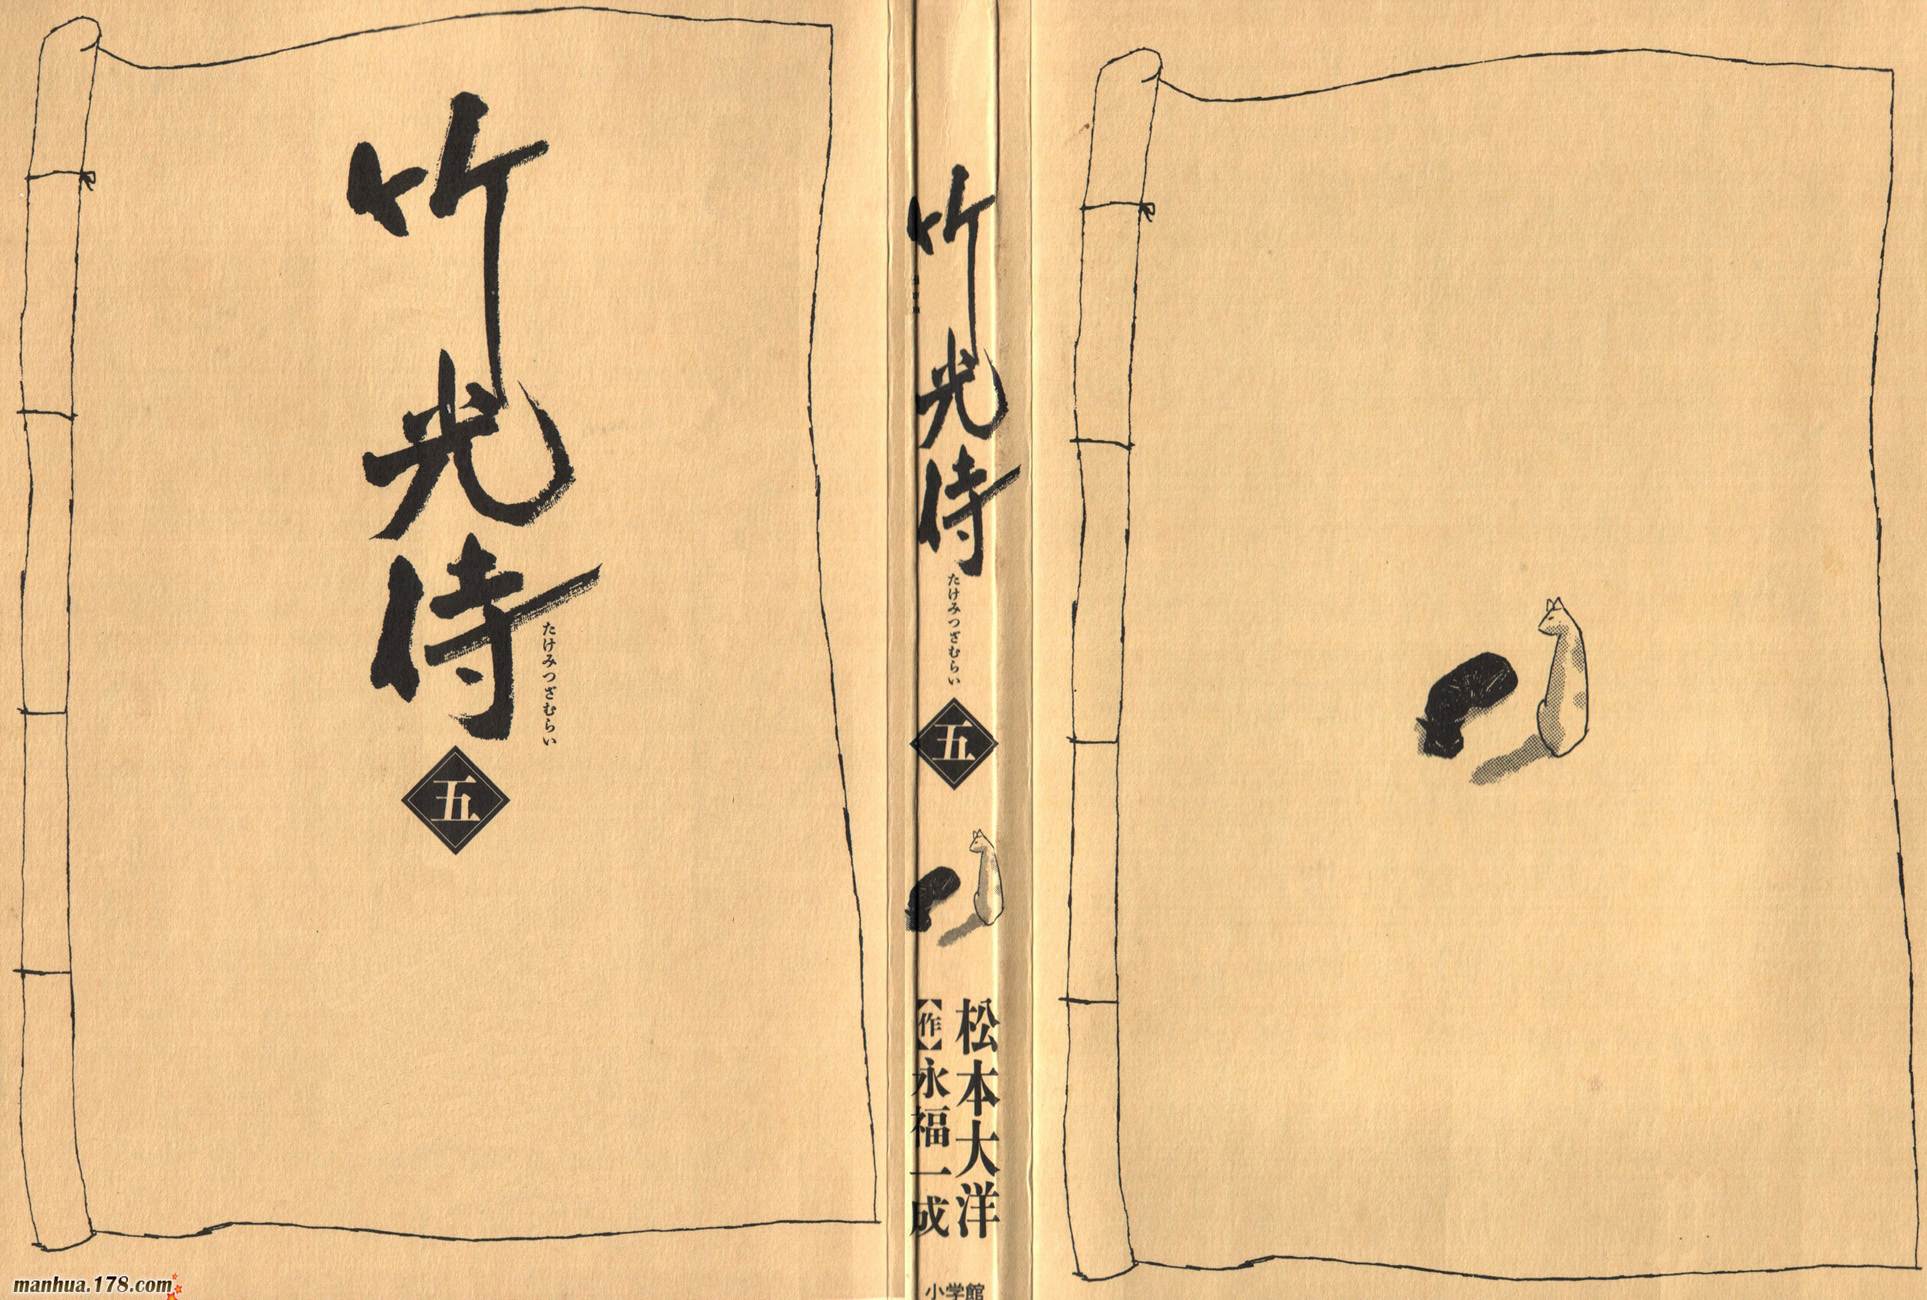 竹光侍
たけみつざむらい
五
竹光侍
たけみつざむらい
五
松本大洋
【作】永福一成
小学館
manhua.178.com